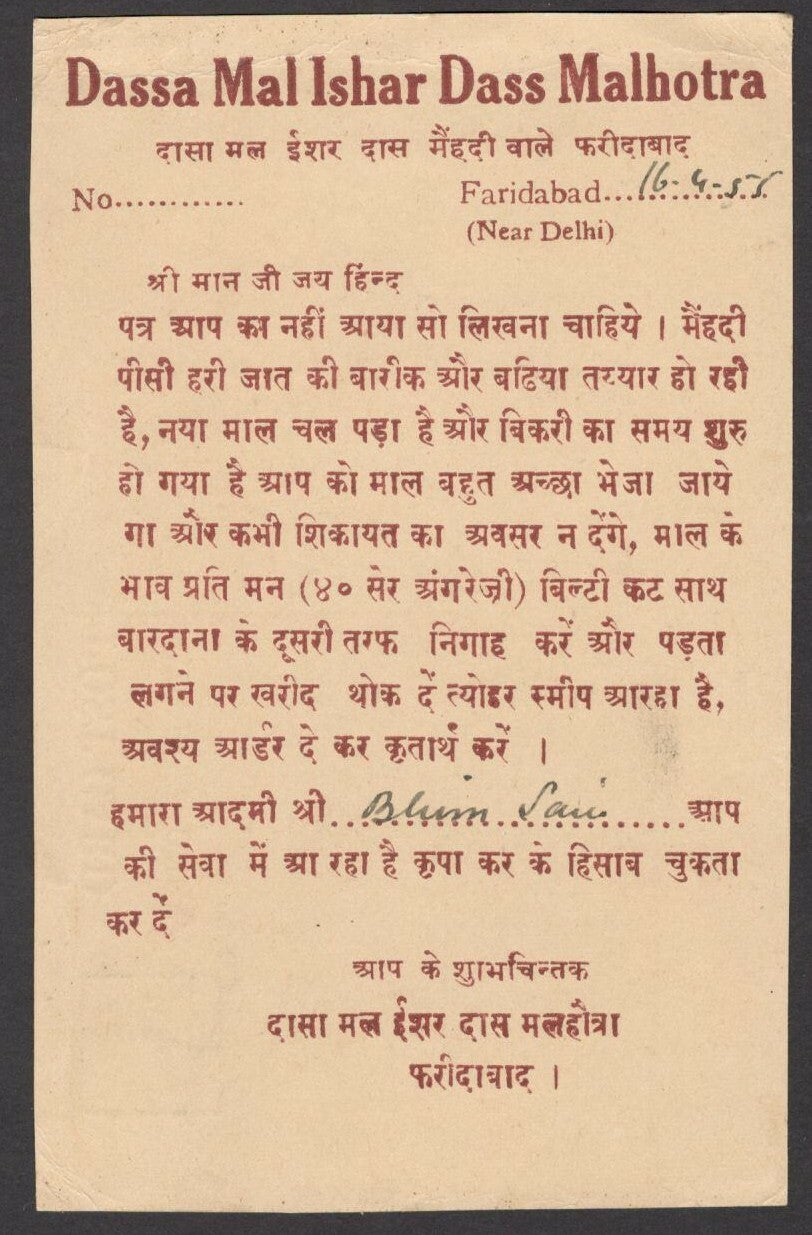 Dassa Mal Ishar Dass Malhotra
दासा मल ईशर दास मैंहदी वाले फरीदाबाद
No............ Faridabad... 16-4-55
(Near Delhi)
श्री मान जी जय हिन्द
पत्र आप का नहीं आया सो लिखना चाहिये । मैंहदी
पीसी हरी जात की बारीक और बढिया तय्यार हो रही
है, नया माल चल पड़ा है और बिकरी का समय शुरु
हो गया है आप को माल बहुत अच्छा भेजा जाये
गा और कभी शिकायत का अवसर न देंगे, माल के
भाव प्रति मन (४० सेर अंगरेज़ी) बिल्टी कट साथ
बारदाना के दूसरी तरफ निगाह करें और पड़ता
लगने पर खरीद थोक दें त्योहर स्मीप आरहा है,
अवश्य आर्डर दे कर कृतार्थ करें ।
हमारा आदमी श्री...Bhim Sain......आप
की सेवा में आ रहा है कृपा कर के हिसाब चुकता
कर दें
आप के शुभचिन्तक
दासा मल ईशर दास मलहौत्रा
फरीदाबाद ।